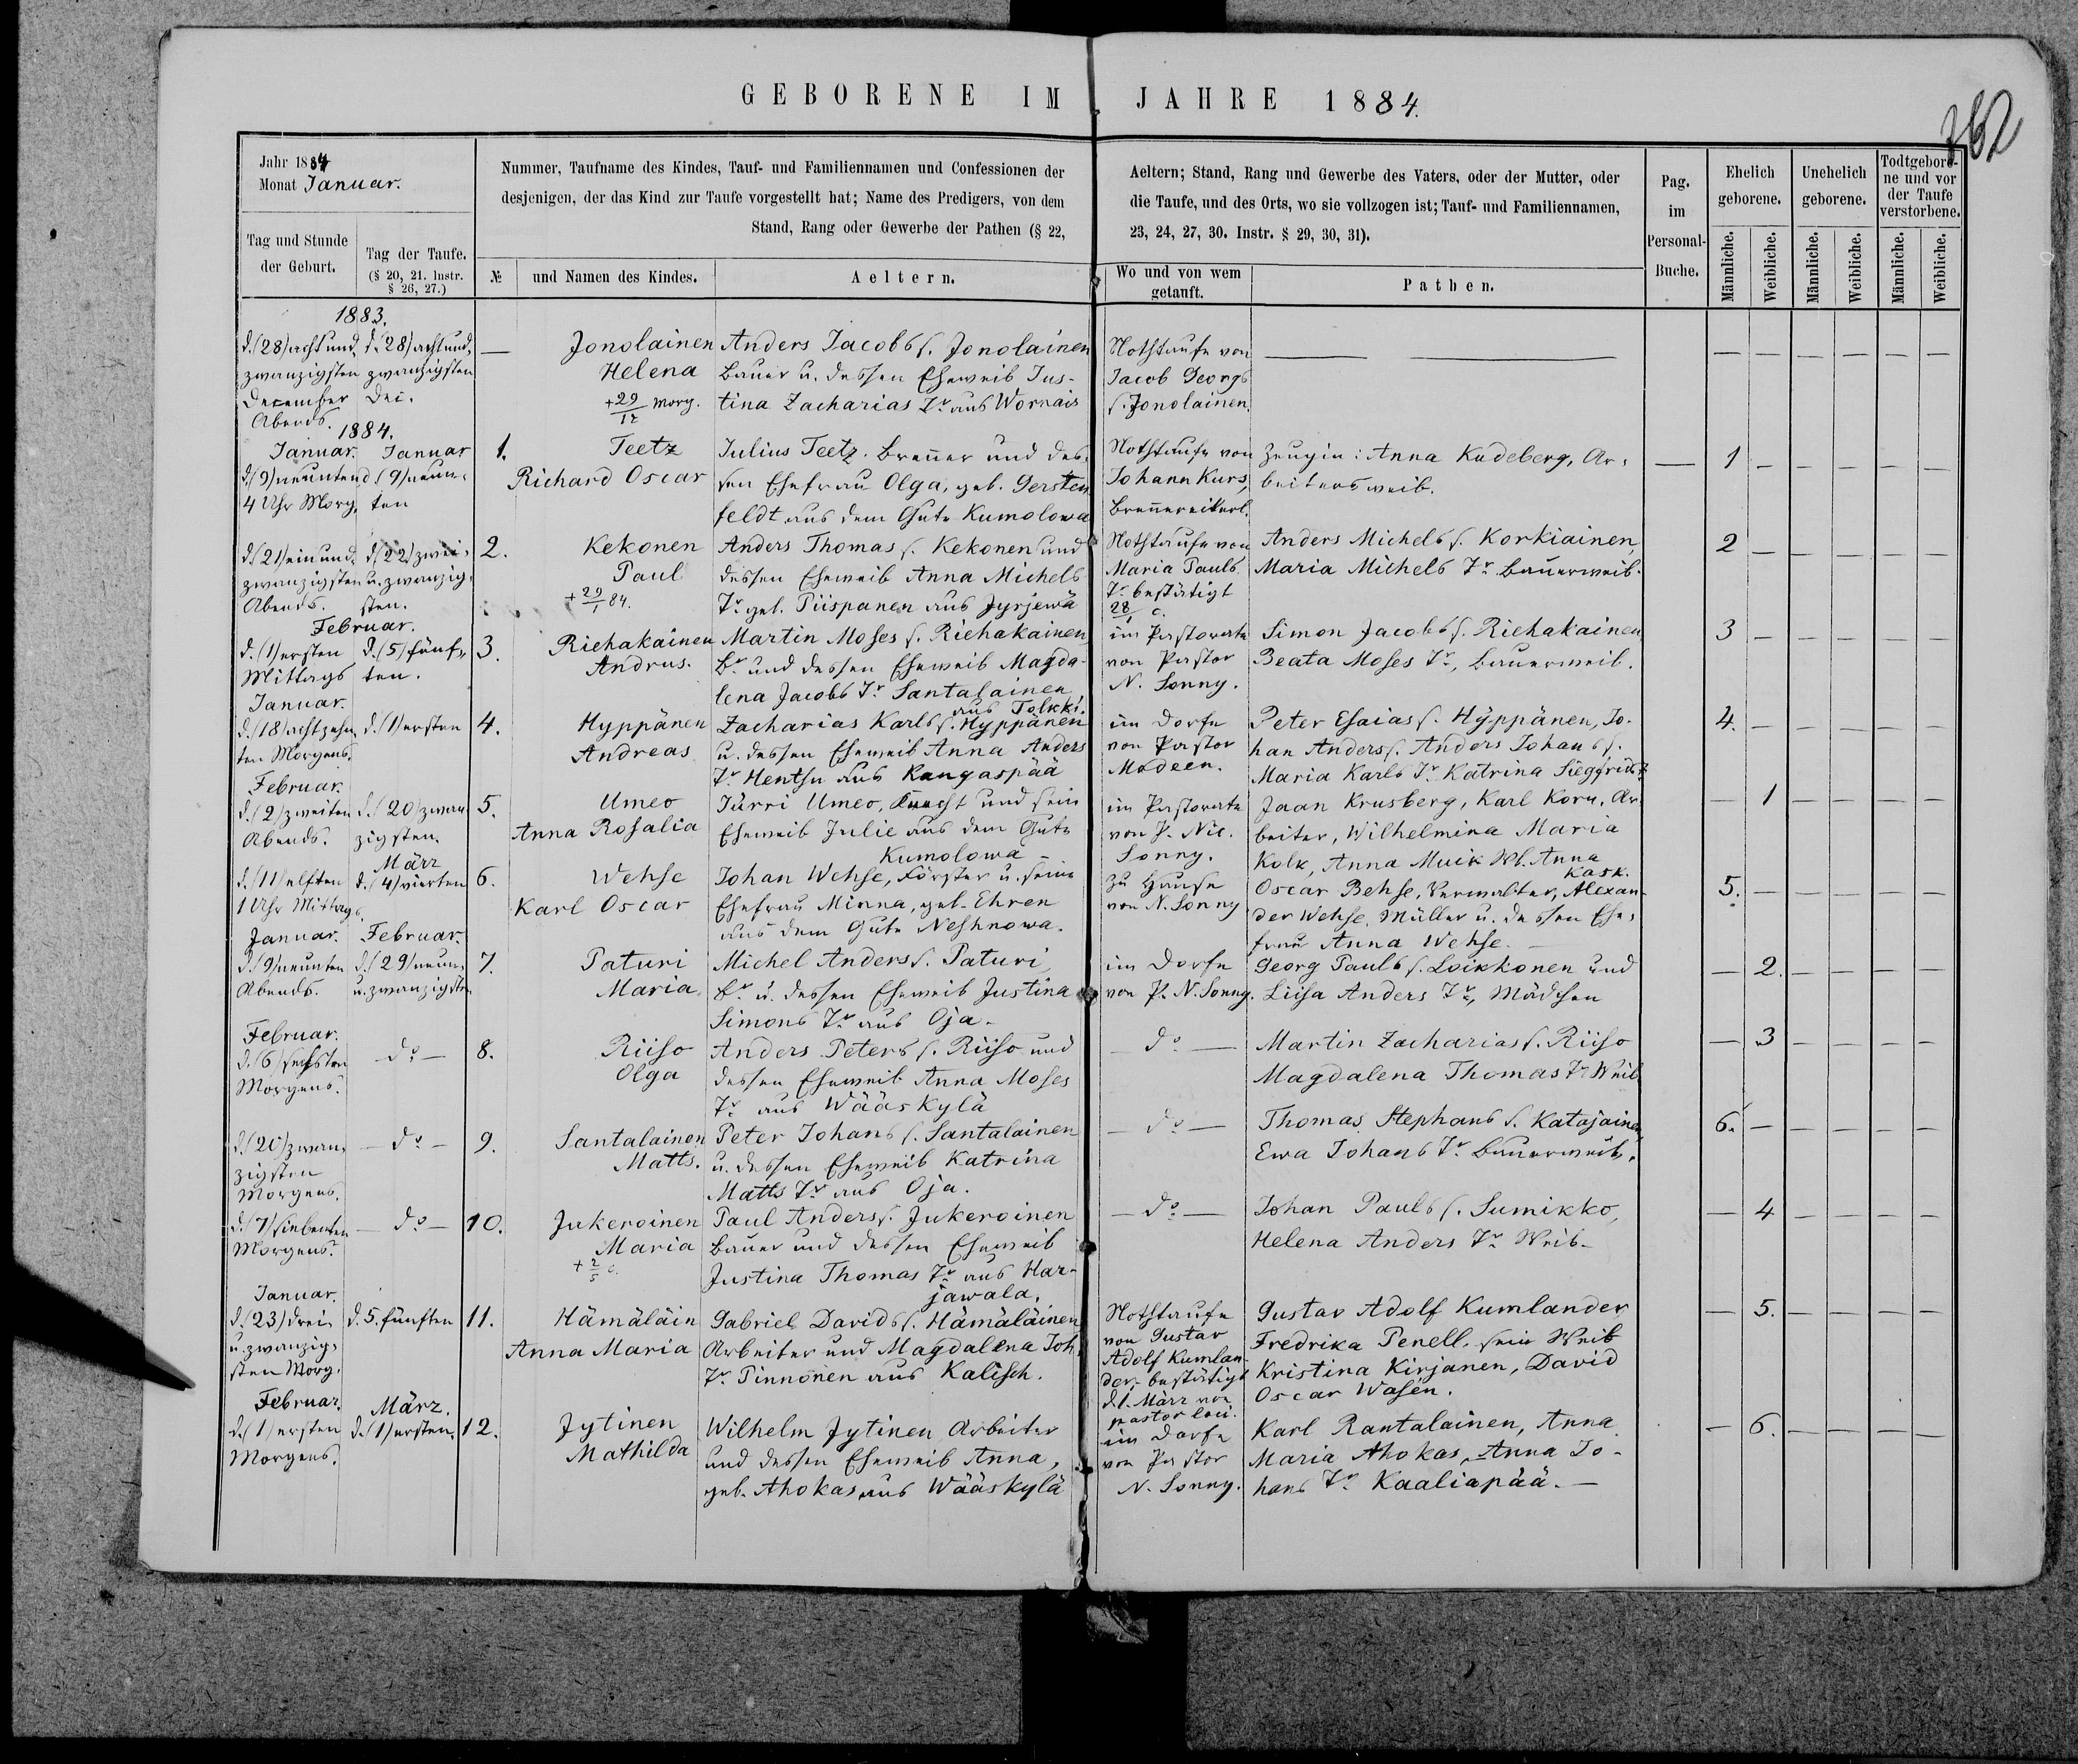 GEBORENE IM JAHRE 1884.
362
Jahr 1884
Monat Januar.
Nummer, Taufname des Kindes, Tauf- und Familiennamen und Confessionen der
desjenigen, der das Kind zur Taufe vorgestellt hat; Name des Predigers, von dem
Stand, Rang oder Gewerbe der Pathen (§ 22,
Aeltern; Stand, Rang und Gewerbe des Vaters, oder der Mutter, oder
die Taufe, und des Orts, wo sie vollzogen ist; Tauf- und Familiennamen,
23, 24, 27, 30. Instr. § 29, 30, 31).
Pag.
im
Personal-
Buche.
Ehelich
geborene.
Unehelich
geborene.
Todtgebore-
ne und vor
der Taufe
verstorbene.
Tag und Stunde
der Geburt.
Tag der Taufe.
(§ 20, 21. Instr.
§ 26, 27.)
№
und Namen des Kindes.
Aeltern.
Wo und von wem
getauft.
Pathen.
Männliche.
Weibliche.
Männliche.
Weibliche.
Männliche.
Weibliche.
1883.
d. (28) achtund-
zwanzigsten
December
Abends.
d. (28) achtund-
zwanzigsten
Dei.
—
Jonolainen
Helena
+ 29/12 morg.
Anders Jacobs s. Jonolainen
Bauer u. dessen Eheweib Jus-
tina Zacharias Tr aus Wornais
Nothtaufe von
Jacob Georgs
s. Jonolainen.
— —
— — — — — —
1884.
Januar.
d. (9) neunten
4 Uhr Morg.
Januar
d (9) neun-
ten
1.
Teetz
Richard Oscar
Julius Teetz. Brenner und des-
sen Ehefrau Olga, geb. Gersten
feldt aus dem Gute Kumolowa
Nothtaufe von
Johann Kurs,
Brennereikerl.
Zeugin: Anna Kudeberg, Ar-
beitersweib.
— 1 — — — — —
d. (21) einund-
zwanzigsten
Abends.
d. (22) zwei-
u. zwanzig-
sten.
2.
Kekonen
Paul
+ 29/1 84.
Anders Thomas s. Kekonen und
dessen Eheweib Anna Michels
Tr geb. Piispanen aus Jyrjewä
Nothtaufe von
Maria Pauls
Tr bestätigt
28/ c.
Anders Michels s. Korkiainen,
Maria Michels Tr Bauerweib.
2 — — — — —
Februar.
d. (1) ersten
Mittags
d. (5) fünf-
ten.
3.
Riehakainen
Andrus.
Martin Moses s. Riehakainen,
Br und dessen Eheweib Magda-
lena Jacobs Tr Santalainen
aus Tolkki.
im Pastorate
von Pastor
N. Sonny.
Simon Jacobs s. Riehakainen,
Beata Moses Tr, Bauerweib.
3 — — — — —
Januar.
d. (18) achtzehn
ten Morgens.
d. (1) ersten
4.
Hyppänen
Andreas
Zacharias Karls s. Hyppänen
u. dessen Eheweib Anna Anders
Tr Hentsu aus Kangaspää
im Dorfe
von Pastor
Modeen.
Peter Esaias s. Hyppänen, Jo-
han Anders s. Anders Johans s.
Maria Karls Tr Katrina Siegfrids
4. — — — — —
Februar.
d. (2) zweiten
Abends.
d. (20) zwan
zigsten.
5.
Umeo
Anna Rosalia
Jürri Umeo, Knecht und sein
Eheweib Julie aus dem Gute
Kumolowa —
im Pastorate
von P. Nic.
Sonny.
Jaan Krusberg, Karl Korn, Ar-
beiter, Wilhelmina Maria
Kolk, Anna Muik Wb. Anna
Kask.
— 1 — — — —
d. (11) elften
1 Uhr Mittags.
März
d. (4) vierten
6.
Wehse
Karl Oscar
Johan Wehse, Förster u. seine
Ehefrau Minna, geb. Ehren
aus dem Gute Neshnowa.
zu Hause
von N. Sonny
Oscar Behse, Verwalter, Alexan-
der Wehse, Müller u. dessen Ehe-
frau Anna Wehse. —
5. — — — — —
Januar.
d. (9) neunten
Abends.
Februar.
d. (29) neun-
u. zwanzigsten
7.
Paturi
Maria
Michel Anders s. Paturi
Br u. dessen Eheweib Justina
Simons Tr aus Oja.
im Dorfe
von P. N. Sonny.
Georg Pauls s. Loikkonen und
Liisa Anders Tr, Mädchen
— 2. — — — —
Februar.
d. (6) sechsten
Morgens.
— do —
8.
Riiso
Olga
Anders Peters s. Riiso und
dessen Eheweib Anna Moses
Tr aus Wääskylä
— do —
Martin Zacharias s. Riiso
Magdalena Thomas Tr Weib
— 3 — — — —
d. (20) zwan-
zigsten
Morgens.
— do —
9.
Santalainen
Matts.
Peter Johans s. Santalainen
u. dessen Eheweib Katrina
Matts Tr aus Oja.
— do —
Thomas Stephans s. Katajainen,
Ewa Johans Tr Bauerweib.
6. — — — — —
d. (7) siebenten
Morgens.
— do —
10.
Jukeroinen
Maria
+ 2/5 c.
Paul Anders s. Jukeroinen
Bauer und dessen Eheweib
Justina Thomas Tr aus Har-
jawala.
— do —
Johan Pauls s. Sumikko,
Helena Anders Tr Weib —
— 4 — — — —
Januar.
d. (23) drei-
u. zwanzig-
sten Morg.
d. 5. fünften
11.
Hämäläin
Anna Maria
Gabriel Davids s. Hämäläinen
Arbeiter und Magdalena Joh.
Tr Pinnönen aus Kalisch.
Nothtaufe
von Gustav
Adolf Kumlan-
der, bestätigt
d. 1. März von
pastor loci.
Gustav Adolf Kumlander
Fredrika Penell, sein Weib
Kristina Kirjanen, David
Oscar Wasen.
— 5. — — — —
Februar.
d. (1) ersten
Morgens.
März.
d. (1) ersten.
12.
Jytinen
Mathilda
Wilhelm Jytinen Arbeiter
und dessen Eheweib Anna,
geb. Ahokas aus Wääskylä
im Dorfe
von Pastor
N. Sonny.
Karl Rantalainen, Anna
Maria Ahokas, Anna Jo-
hans Tr Kaaliapää. —
— 6. — — — —